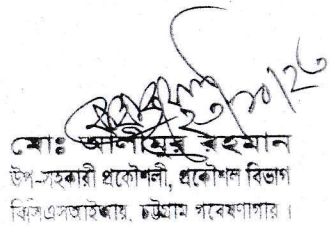 ২৬/১০/২৩
মোঃ আলীমুর রহমান
উপ-সহকারী প্রকৌশলী, প্রকৌশল বিভাগ
বিসিএসআইআর, চট্টগ্রাম গবেষণাগার।